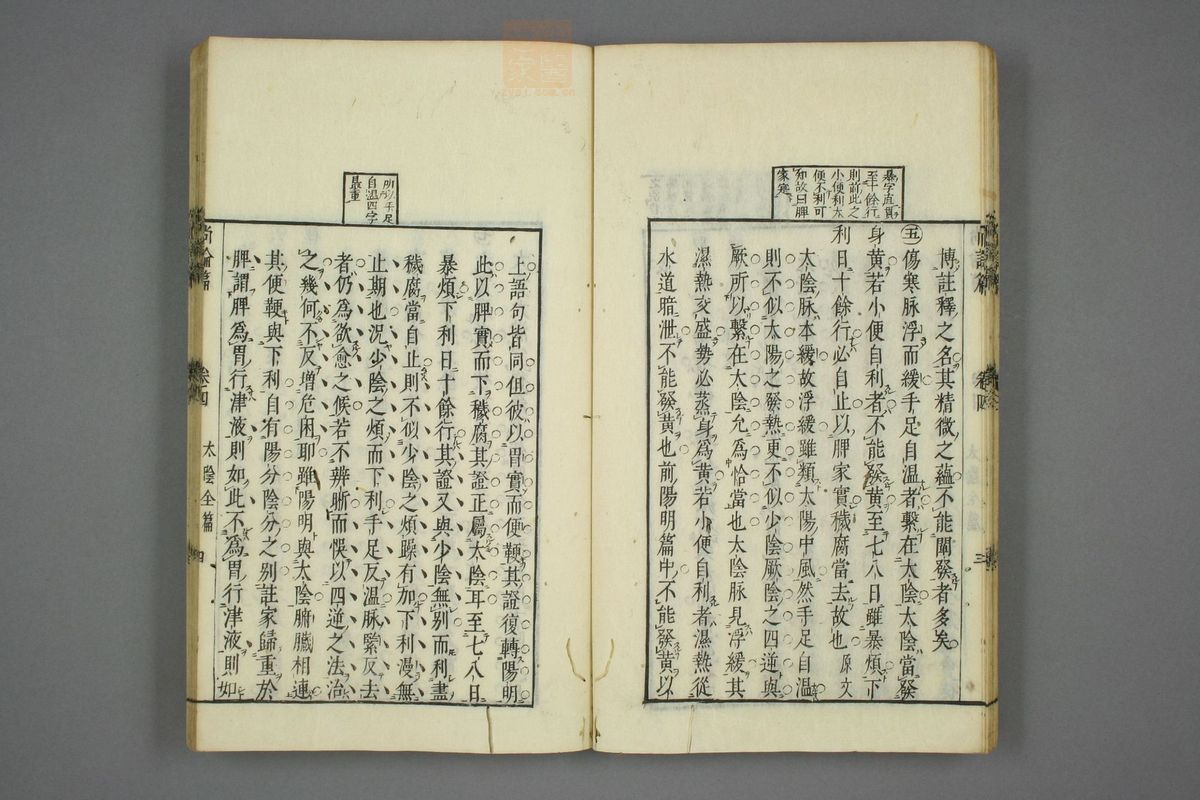 暴字直貫
至十餘行
則前此之
小便利大
便不利可
知故曰脾
家實
博註釋之名其精微之蘊不能闡發者多矣
㊄傷寒脉浮而緩手足自溫者繫在太陰太陰當發
身黄若小便自利者不能發黄至七八日雖暴煩下
利日十餘行必自止以脾家實穢腐當去故也原文
太陰脉本緩故浮緩雖類太陽中風然手足自溫
則不似太陽之發熱更不似少陰厥陰之四逆與
厥所以繫在太陰允爲恰當也太陰脉見浮緩其
濕熱交盛勢必蒸身爲黄若小便自利者濕熱從
水道暗泄不能發黄也前陽明篇中不能發黄以
尚論篇
卷四
三
所以手足
自溫四字
最重
上語句皆同但彼以胃實而便鞕其證復轉陽明
此以脾實而下穢腐其證正屬太陰耳至七八日
暴煩下利日十餘行其證又與少陰無別而利盡
穢腐當自止則不似少陰之煩躁有加下利漫無
止期也況少陰之煩而下利手足反溫脉緊反去
者仍爲欲愈之候若不辨晰而悞以四逆之法治
之幾何不反增危困耶雖陽明與太陰腑臟相連
其便鞕與下利自有陽分陰分之別註家歸重於
脾謂脾爲胃行津液則如此不爲胃行津液則如
尚論篇
卷四
太陰全篇
四